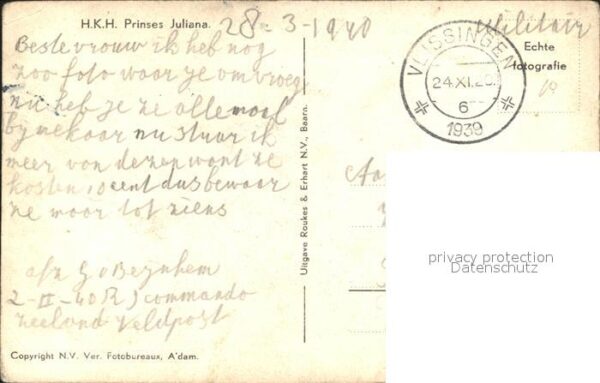 H.K.H. Prinses Juliana.
28-3-1940
Militair
Echte
fotografie
10
VLISSINGEN
24.XI.
6
1939
Beste vrouw ik heb nog
zoo foto waar je om vroeg
nu heb je ze allemaal
by mekaar nu stuur ik
meer van dezen want ze
kosten 10 cent dus bewaar
ze maar tot ziens
afz G v Beynhem
2-II-40 R J commando
zeeland Veldpost
Uitgave Roukes & Erhart N.V., Baarn.
Copyright N.V. Ver. Fotobureaux, A'dam.
privacy protection
Datenschutz